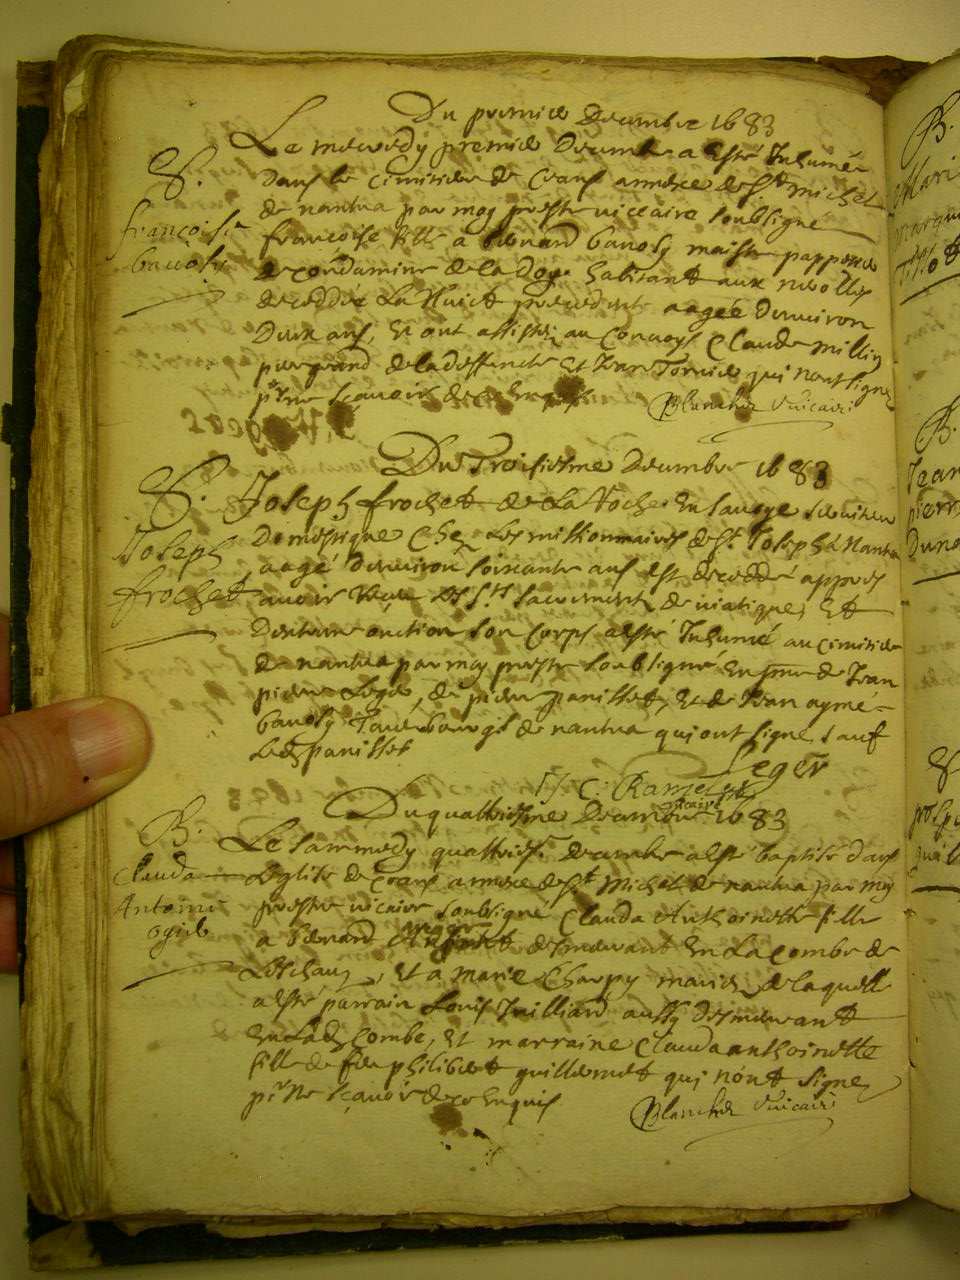 Du premier decembre 1683
S.
francoise
bavoly
Le mecredy premier decembre a esté Inhumée
dans le cimitiere de Craus annexe de St. Michel
de nantua par moy prestre viccaire soubsigné
francoise fille a bernard bavoly maistre pappetier
de condamine de la doye habitant aux nerolles
deceddée La Nuict precedente aagée denviron
deux ans, Et ont assisté au Convoys Claude millin
pierre grand de la deffanche et Jean Tornier qui nont signé
pr. ne sçavoir de ce Enquis
Blanchet Viccaire
Du Troisiesme decembre 1683
S.
Joseph
frochet
Joseph frochet de La Roche En savoye serviteur
domestique Chez Les missionnaires de St. Joseph a Nantua
aagé denviron soixante ans est deceddé appres
avoir Receu Les Sts sacrements de viatique, Et
dextreme onction son Corps a esté Inhumé au cimitiere
de nantua par moy prestre soubsigné En pnce de Jean
pierre Leger, de pierre panisset, Et de Jean aymé
bavoly Tous bourgs. de nantua qui ont signé sauf
Led. panisset
Leger
C. Ramelet
vicaire
Du quattriesme decembre 1683
B.
Clauda
Antoine
ogier
Le sammedy quattriesme decembre a esté baptisé dans
Leglise de Craus annexe de St. Michel de nantua par moy
prestre vicaire soubsigné Clauda Anthoinette fille
a bernard ogier demeurant En La Combe de
Leschaux, Et a marie Charpy mariez, de laquelle
a esté parrain Louis Juilliard aussy demeurant
En Lad. Combe, Et marraine Clauda anthoinette
fille de feu philibert guillermet qui nont signé
pr. ne sçavoir de ce Enquis
Blanchet Viccaire